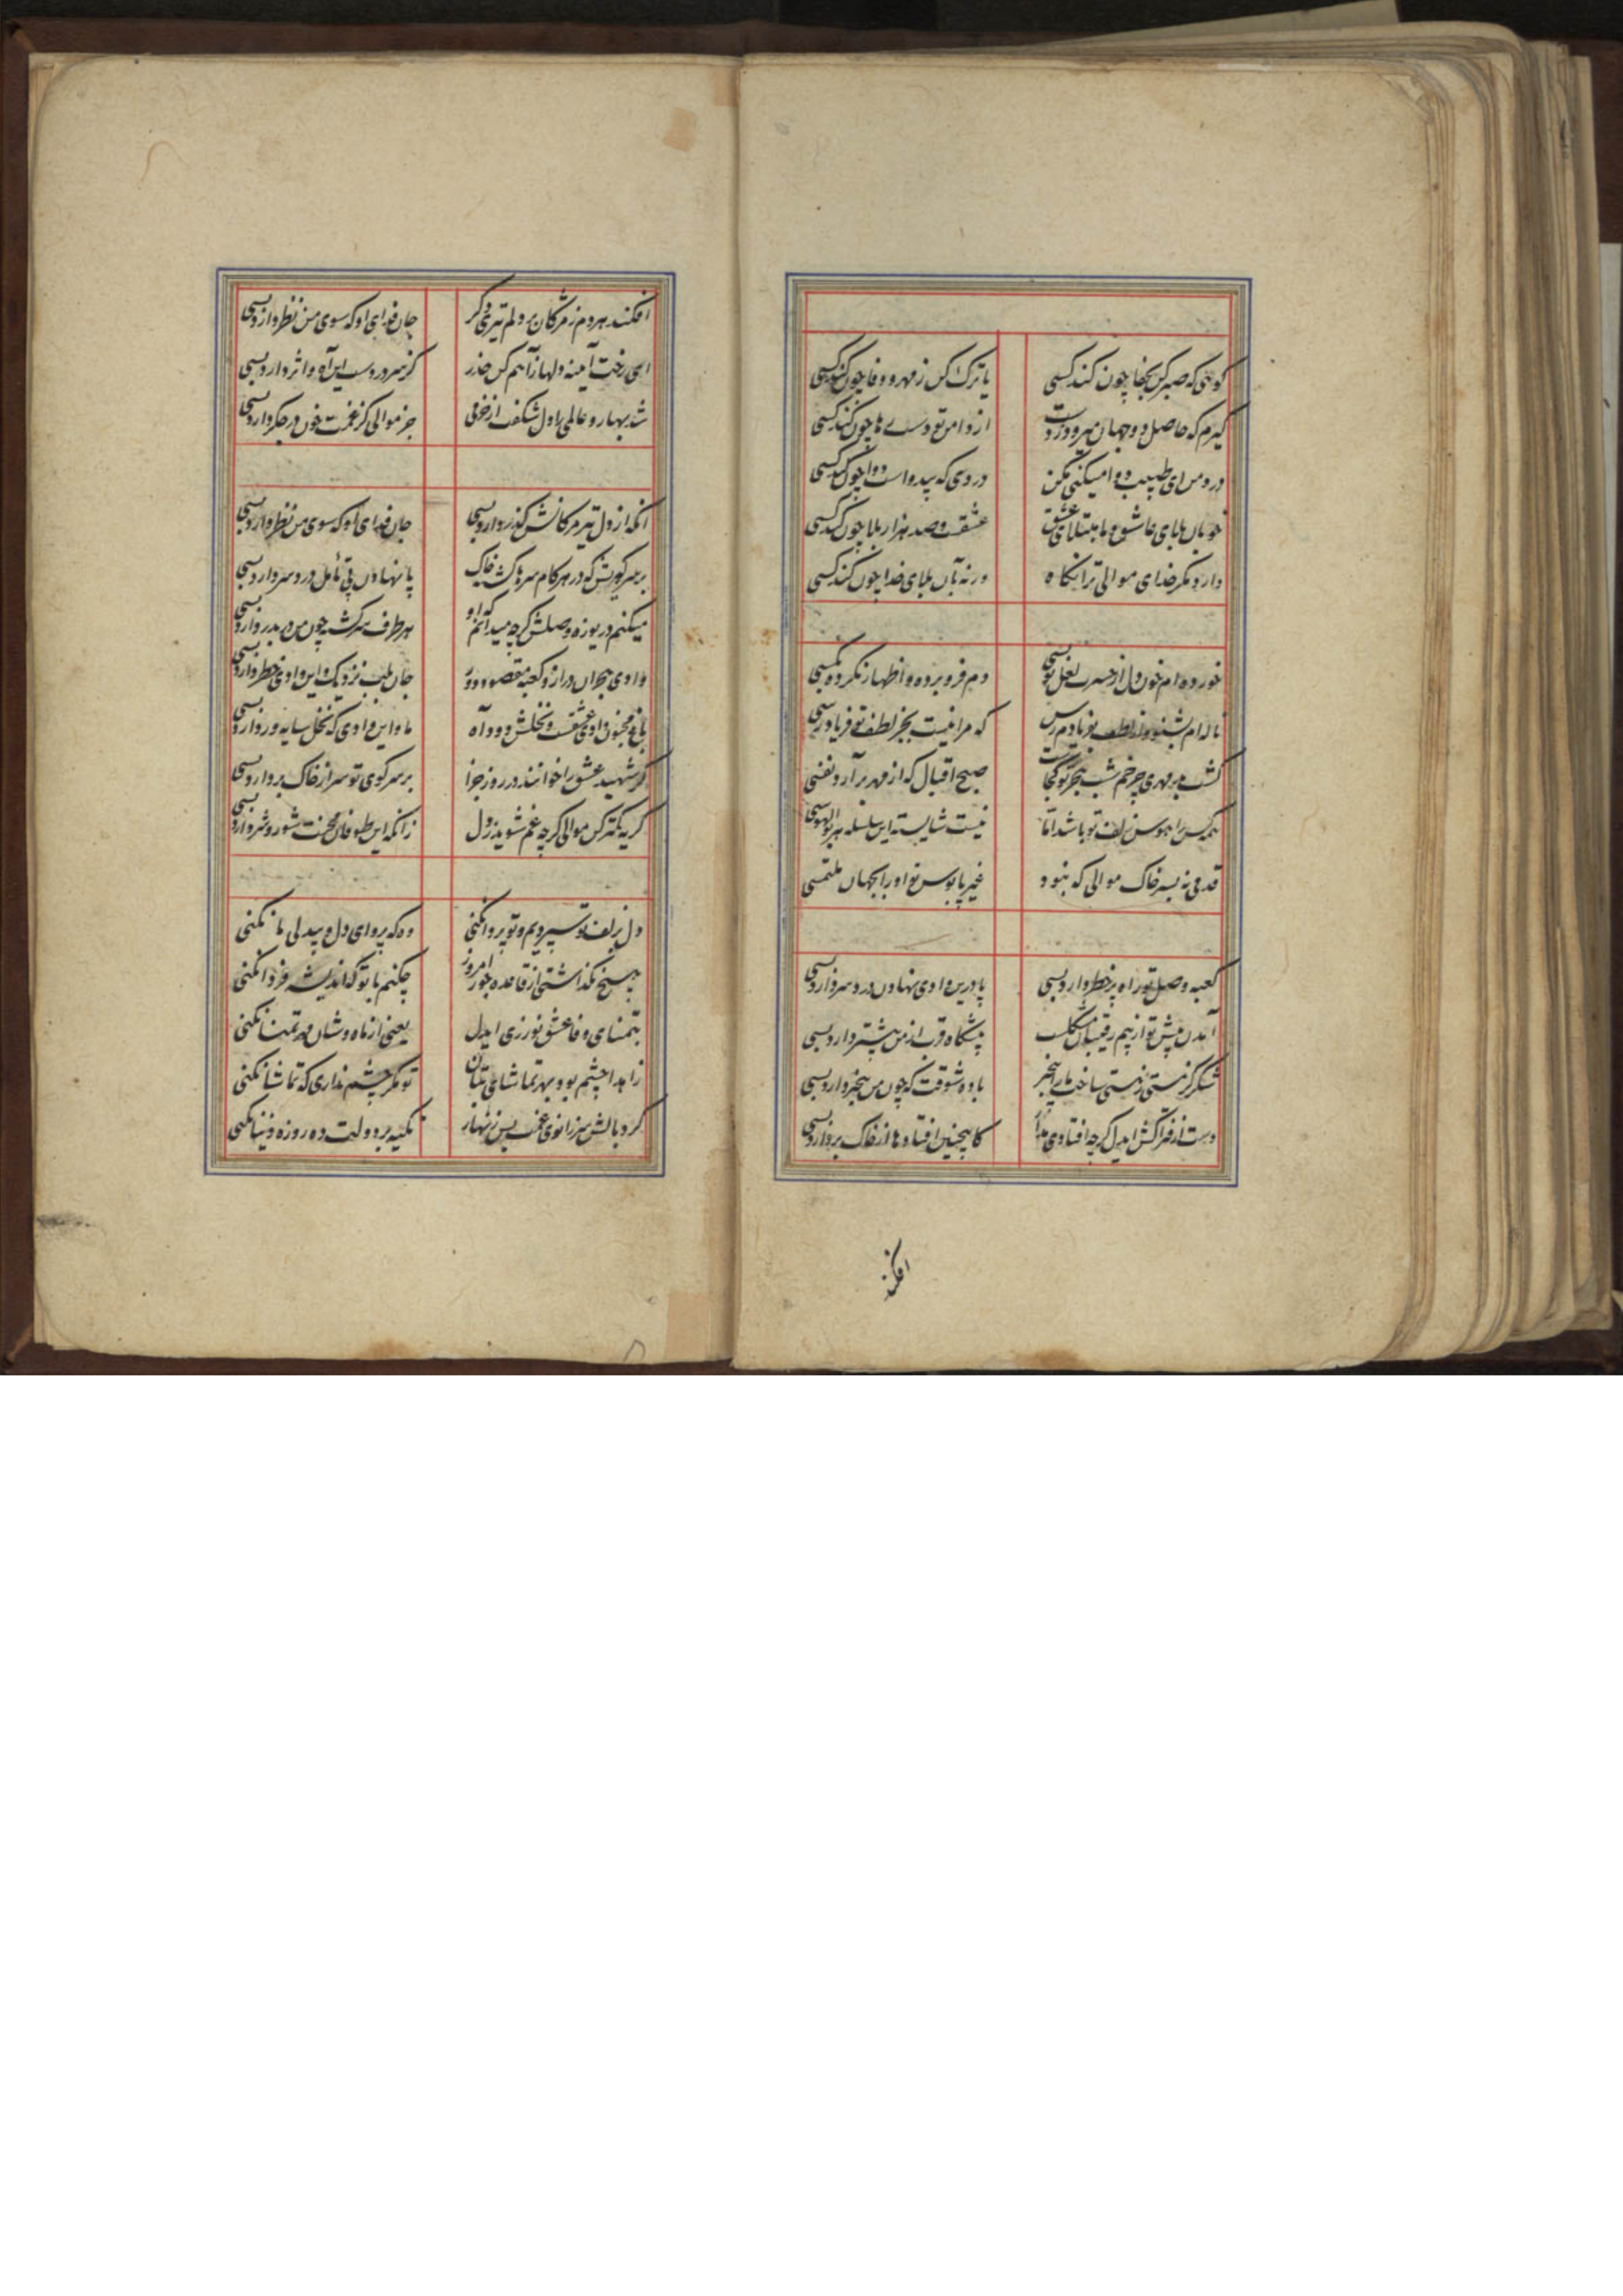 گویی که صبر کن بجفا چون کند کسی
یا ترک کن ز مهر و وفا چون کند کسی
گیرم که حاصل دو جهان میرود ز دست
از دامن تو دست رها چون کند کسی
درد من ای طبیب دوا میکنی مکن
دردی که بیدواست دوا چون کند کسی
خوبان بلای عاشق و ما مبتلای عشق
عشقت و صد هزار بلا چون کند کسی
دارد مگر خدای موالی ترا نگاه
ورنه بآن بلای خدا چون کند کسی
خورده ام خون دل از حسرت لعل تو بسی
دم فرو برده و اظهار نکرده بکسی
ناله ام بشنو و از لطف بفریادم رس
که مرا نیست بجز لطف تو فریادرسی
کشت بی مهری چرخم شب هجر تو کجاست
صبح اقبال که از مهر برآرد نفسی
همه کس را هوس زلف تو باشد اما
نیست شایسته این سلسله هر بوالهوسی
قدمی نه بسر خاک موالی که نبود
غیر پابوس تو او را بجهان ملتمسی
کعبه وصل تو راه پر خطر دارد بسی
پا درین وادی نهادن درد سر دارد بسی
آمدن پیش تو از بیم رقیبان مشکلست
پیشگاه قرب از من بیشتر دارد بسی
شکر کز هستی ز مستی ساخت ما را بیخبر
باده شوقت که چون من بیخبر دارد بسی
دست از فتراکش ایدل گرچه افتادی مدار
کاینچنین افتادها از خاک بردارد بسی
افکند
افکند هردم ز مژگان بر دلم تیری دگر
جان فدای او که سوی من نظر دارد بسی
ای رخت آیینه دلها ز آهم کن حذر
کز سر دردست این آه و اثر دارد بسی
شد بهار و عالمی را دل شکفت از خرمی
جز موالی کز غمت خون در جگر دارد بسی
آنکه از دل تیر مژگانش گذر دارد بسی
جان فدای او که سوی من نظر دارد بسی
بر سر کویش که در هر گام سرها گشت خاک
پا نهادن بی تأمل درد سر دارد بسی
میکنم دریوزه وصلش گرچه میدانم که او
هر طرف سرگشته چون من در بدر دارد بسی
وادی هجران دراز و کعبه مقصود دور
جان بلب نزدیک و این وادی خطر دارد بسی
باغ مجنون وادی عشقست و نخلش دود آه
ما و این وادی که نخل سایه ور دارد بسی
گر شهید عشق را خوانند در روز جزا
بر سر کوی تو سر از خاک بردارد بسی
گریه کمتر کن موالی گرچه غم شوید ز دل
زانکه این طوفان محنت شور و شر دارد بسی
دل بزلف تو سپردیم و تو پروا نکنی
وه که پروای دل و بیدلی ما نکنی
هیچ نگذاشتی از قاعده جور امروز
چکنم با تو که اندیشه فردا نکنی
بتمنای وفا عشق نورزی ایدل
یعنی از ماه وشان مهر تمنا نکنی
زاهدا چشم بود بهر تماشای بتان
تو مگر چشم نداری که تماشا نکنی
کرد بالش سر زانوی غمت پس زنهار
تکیه بر دولت ده روزه دنیا نکنی